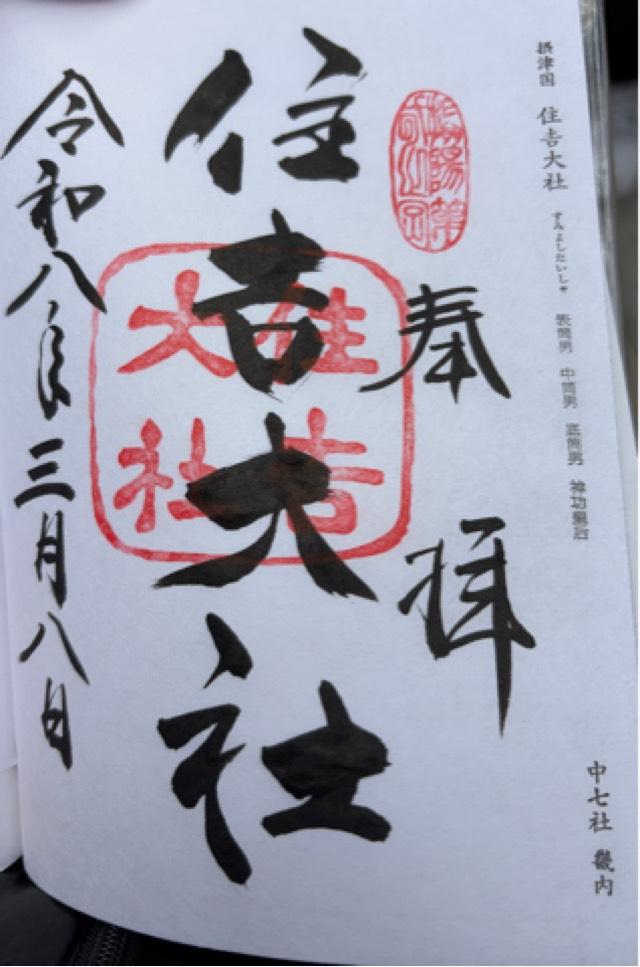 摂津国 住吉大社 すみよしたいしゃ 表筒男 中筒男 底筒男 神功皇后
中七社 畿内
奉拝
住吉大社
住吉
大社
令和八年三月八日